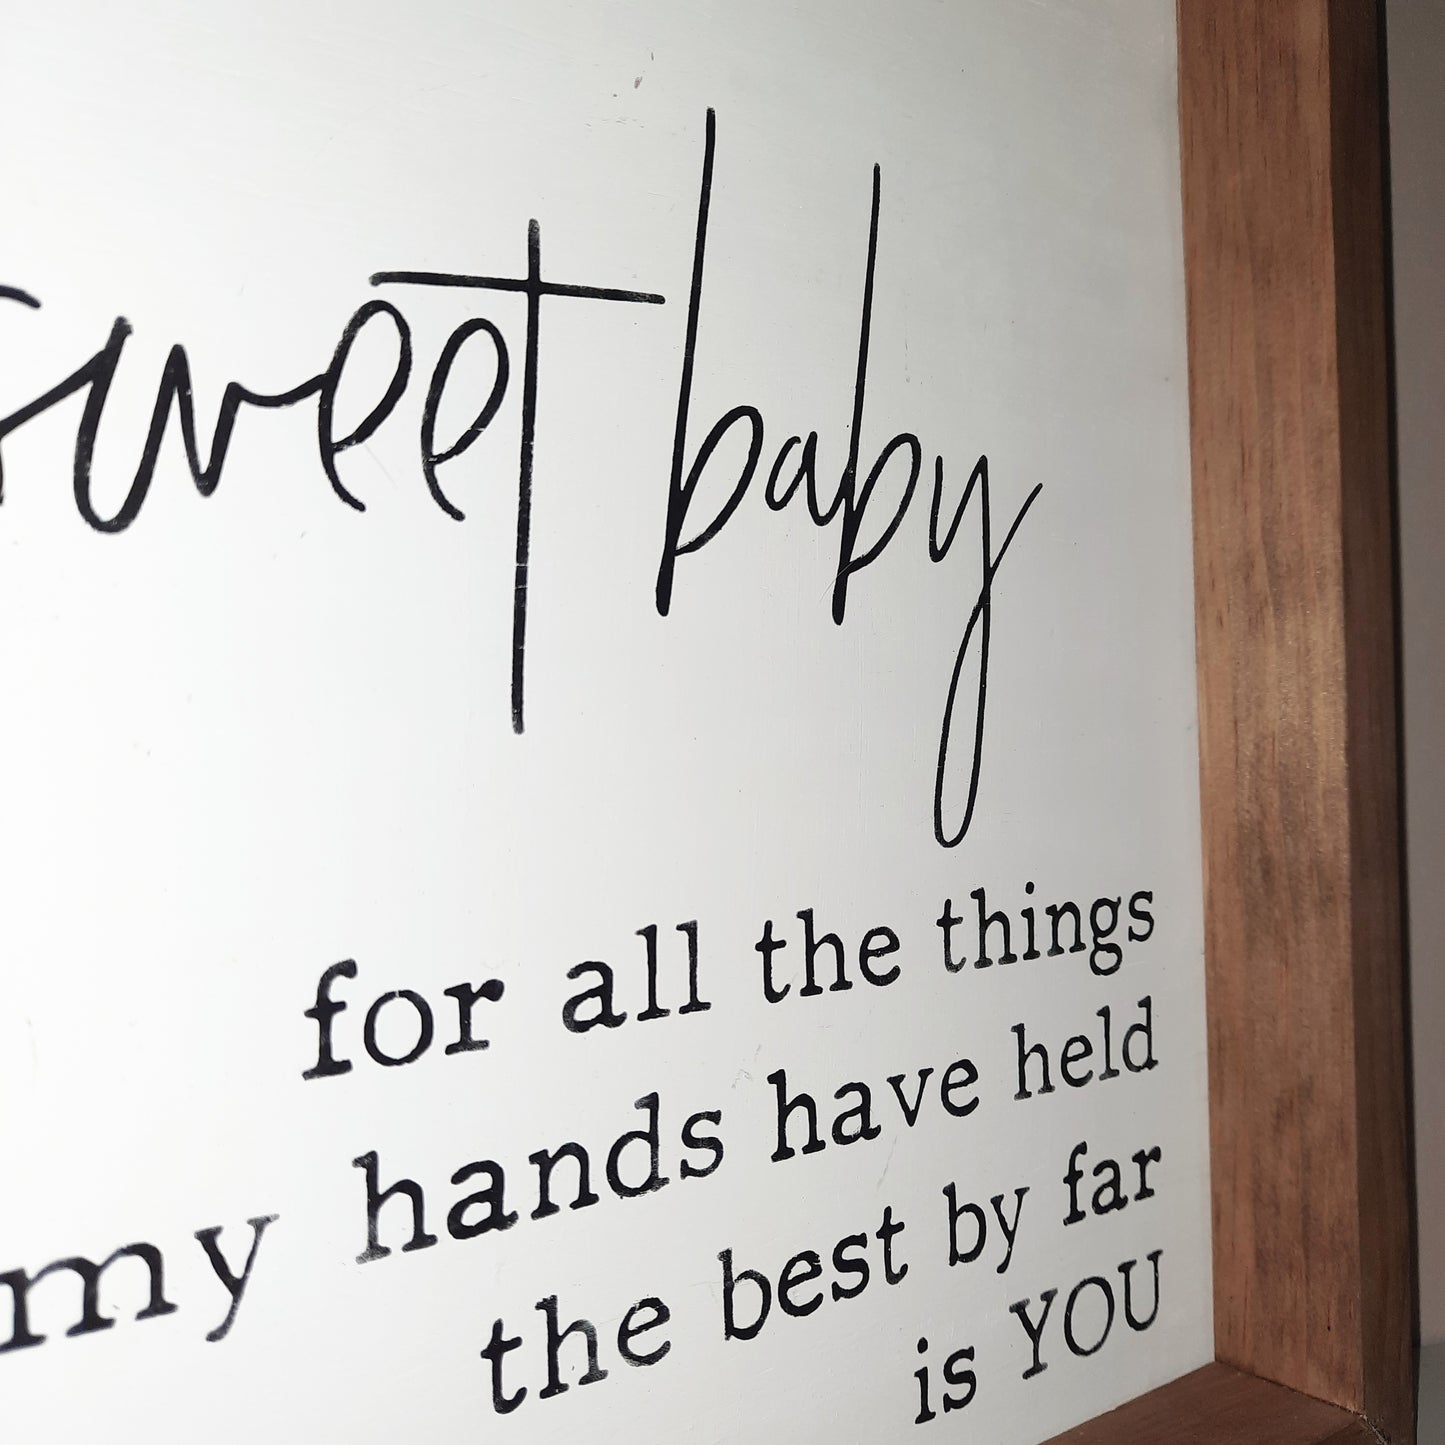 sweet baby
for all the things
my hands have held
the best by far
is YOU